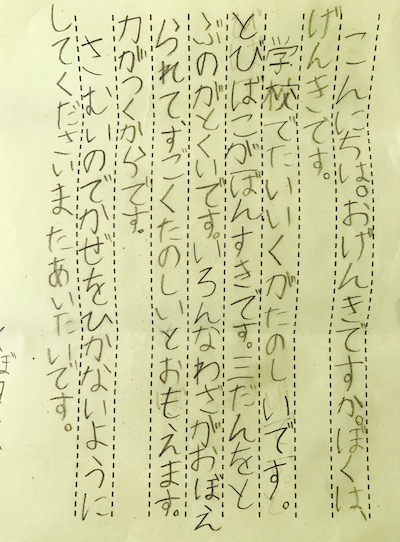 こんにちは。おげんきですか。ぼくは、
げんきです。
学校でたいいくがたのしいです。
とびばこがばんすきです。三だんをと
ぶのがとくいです。いろんなわざがおぼえ
られて、すごくたのしいとおもえます。
力がつくからです。
さむいのでかぜをひかないように
してくださいまたあいたいです。